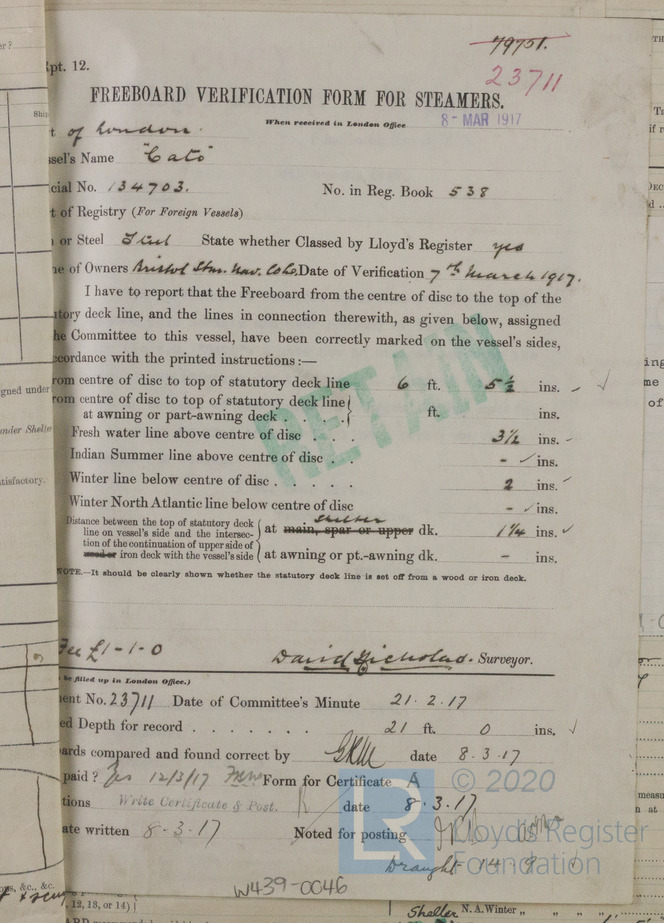 79751.
23711
pt. 12.
FREEBOARD VERIFICATION FORM FOR STEAMERS.
When received in London Office 8 - MAR 1917
t of London.
sel's Name "Cato"
cial No. 134703. No. in Reg. Book 538
t of Registry (For Foreign Vessels)
or Steel Steel State whether Classed by Lloyd's Register yes
e of Owners Bristol Stm. Nav. Co Ld. Date of Verification 7th March 1917.
I have to report that the Freeboard from the centre of disc to the top of the
tory deck line, and the lines in connection therewith, as given below, assigned
he Committee to this vessel, have been correctly marked on the vessel's sides,
ccordance with the printed instructions :—
RETAIN
rom centre of disc to top of statutory deck line 6 ft. 5½ ins.
rom centre of disc to top of statutory deck line
at awning or part-awning deck . . . . ft. ins.
Fresh water line above centre of disc . . . 3½ ins.
Indian Summer line above centre of disc . . - ins.
Winter line below centre of disc . . . . . 2 ins.
Winter North Atlantic line below centre of disc - ins.
Distance between the top of statutory deck
line on vessel's side and the intersec-
tion of the continuation of upper side of
wood or iron deck with the vessel's side
at main, spar or upper shelter dk. 1¼ ins.
at awning or pt.-awning dk. - ins.
NOTE.—It should be clearly shown whether the statutory deck line is set off from a wood or iron deck.
Fee £1-1-0
David Nicholas. Surveyor.
be filled up in London Office.)
ent No. 23711 Date of Committee's Minute 21.2.17
ed Depth for record . . . . . . . 21 ft. 0 ins.
ards compared and found correct by date 8.3.17
paid? Yes 12/3/17 Form for Certificate A
tions Write Certificate & Post. date 8.3.17
ate written 8-3-17 Noted for posting
Draught 14 9
W439-0046
© 2020
Lloyd's Register
Foundation
LR
gned under
nder Shelte
tisfactory.
ons, &c., &c.
, 12, 13, or 14)
Shelter N.A. Winter „ „ „